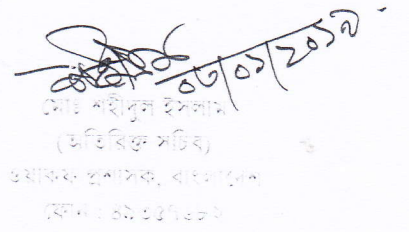 ০৩/০১/২০১৭
মোঃ শহীদুল ইসলাম
(অতিরিক্ত সচিব)
ওয়াকফ প্রশাসক, বাংলাদেশ
ফোন :